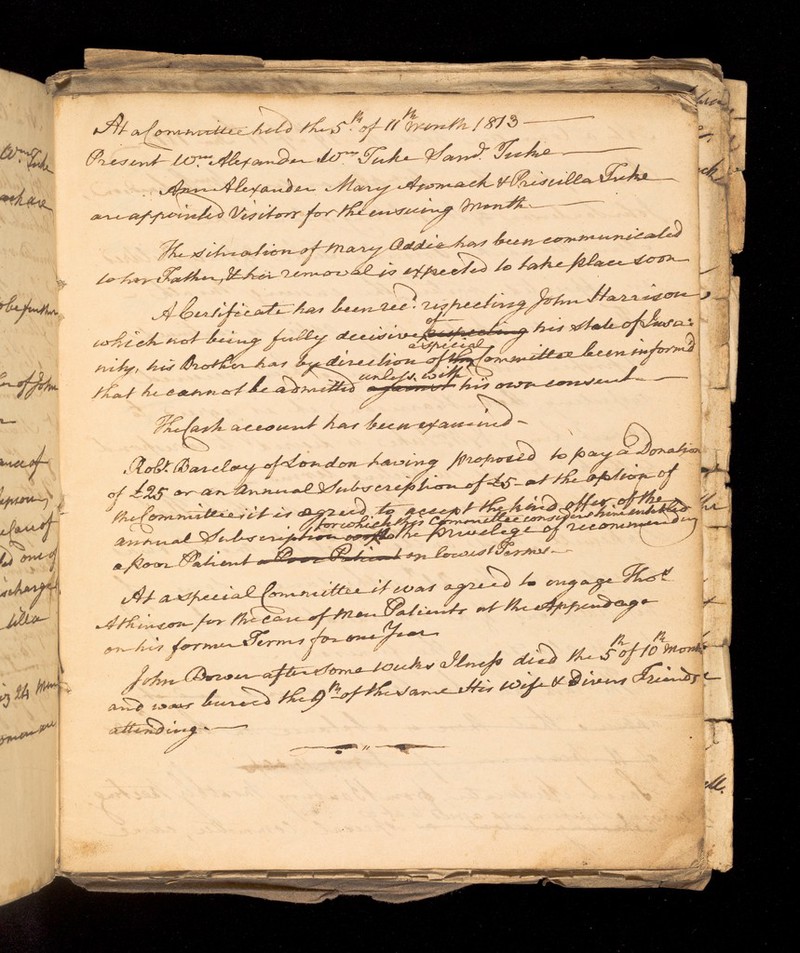 At a Committee held the 5th of 11th Month 1813
Present Wm. Alexander Wm Tuke Saml. Tuke
Ann Alexander Mary Awmack & Priscilla Tuke
are appointed Visitors for the ensuing Month
The situation of Mary Addie has been communicated
to her Father, & her removal is expected to take place soon
A Certificate has been recd. respecting John Harrison,
which not being fully decisive respecting of his state of Insa-
nity, his Brother has by direction of the a special Committee been informd
that he cannot be admitted against unless with his own consent
The Cash account has been examined
Robt. Barclay of London having proposed to pay a Donation
of £25 or an Annual Subscription of £5 at the option of
the Committee; it is agreed to accept the kind offer of the
for which this Committee considers him entitled
annual Subscription to the privelege of recommending
a poor Patient a Poor Patient on lowest Terms
At a special Committee it was agreed to engage Thos.
Atkinson for the care of Men Patients at the Appendage
on his former Terms for one Year
John Bower after some weeks Ilness died the 5th of 10th Month
and was buried the 9th of the same His Wife & Divers Friends
attending
Wm Tuke
of John